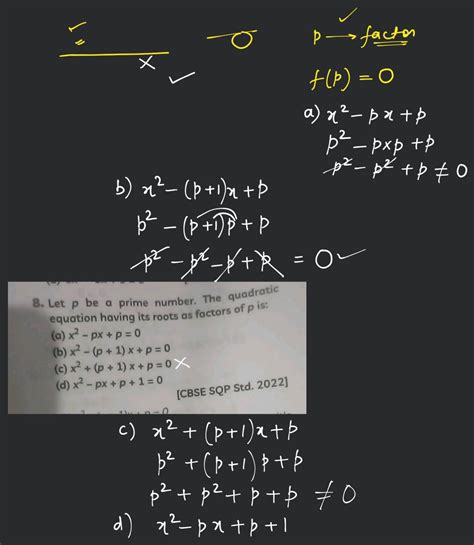 p → factor
f(p) = 0
a) x² − px + p
p² − p×p + p
p² − p² + p ≠ 0
b) x² − (p+1)x + p
p² − (p+1)p + p
p² − p² − p + p = 0 ✓
8. Let p be a prime number. The quadratic
equation having its roots as factors of p is:
(a) x² − px + p = 0
(b) x² − (p + 1) x + p = 0
(c) x² + (p + 1) x + p = 0 ×
(d) x² − px + p + 1 = 0
[CBSE SQP Std. 2022]
c) x² + (p+1)x + p
p² + (p+1)p + p
p² + p² + p + p ≠ 0
d) x² − px + p + 1